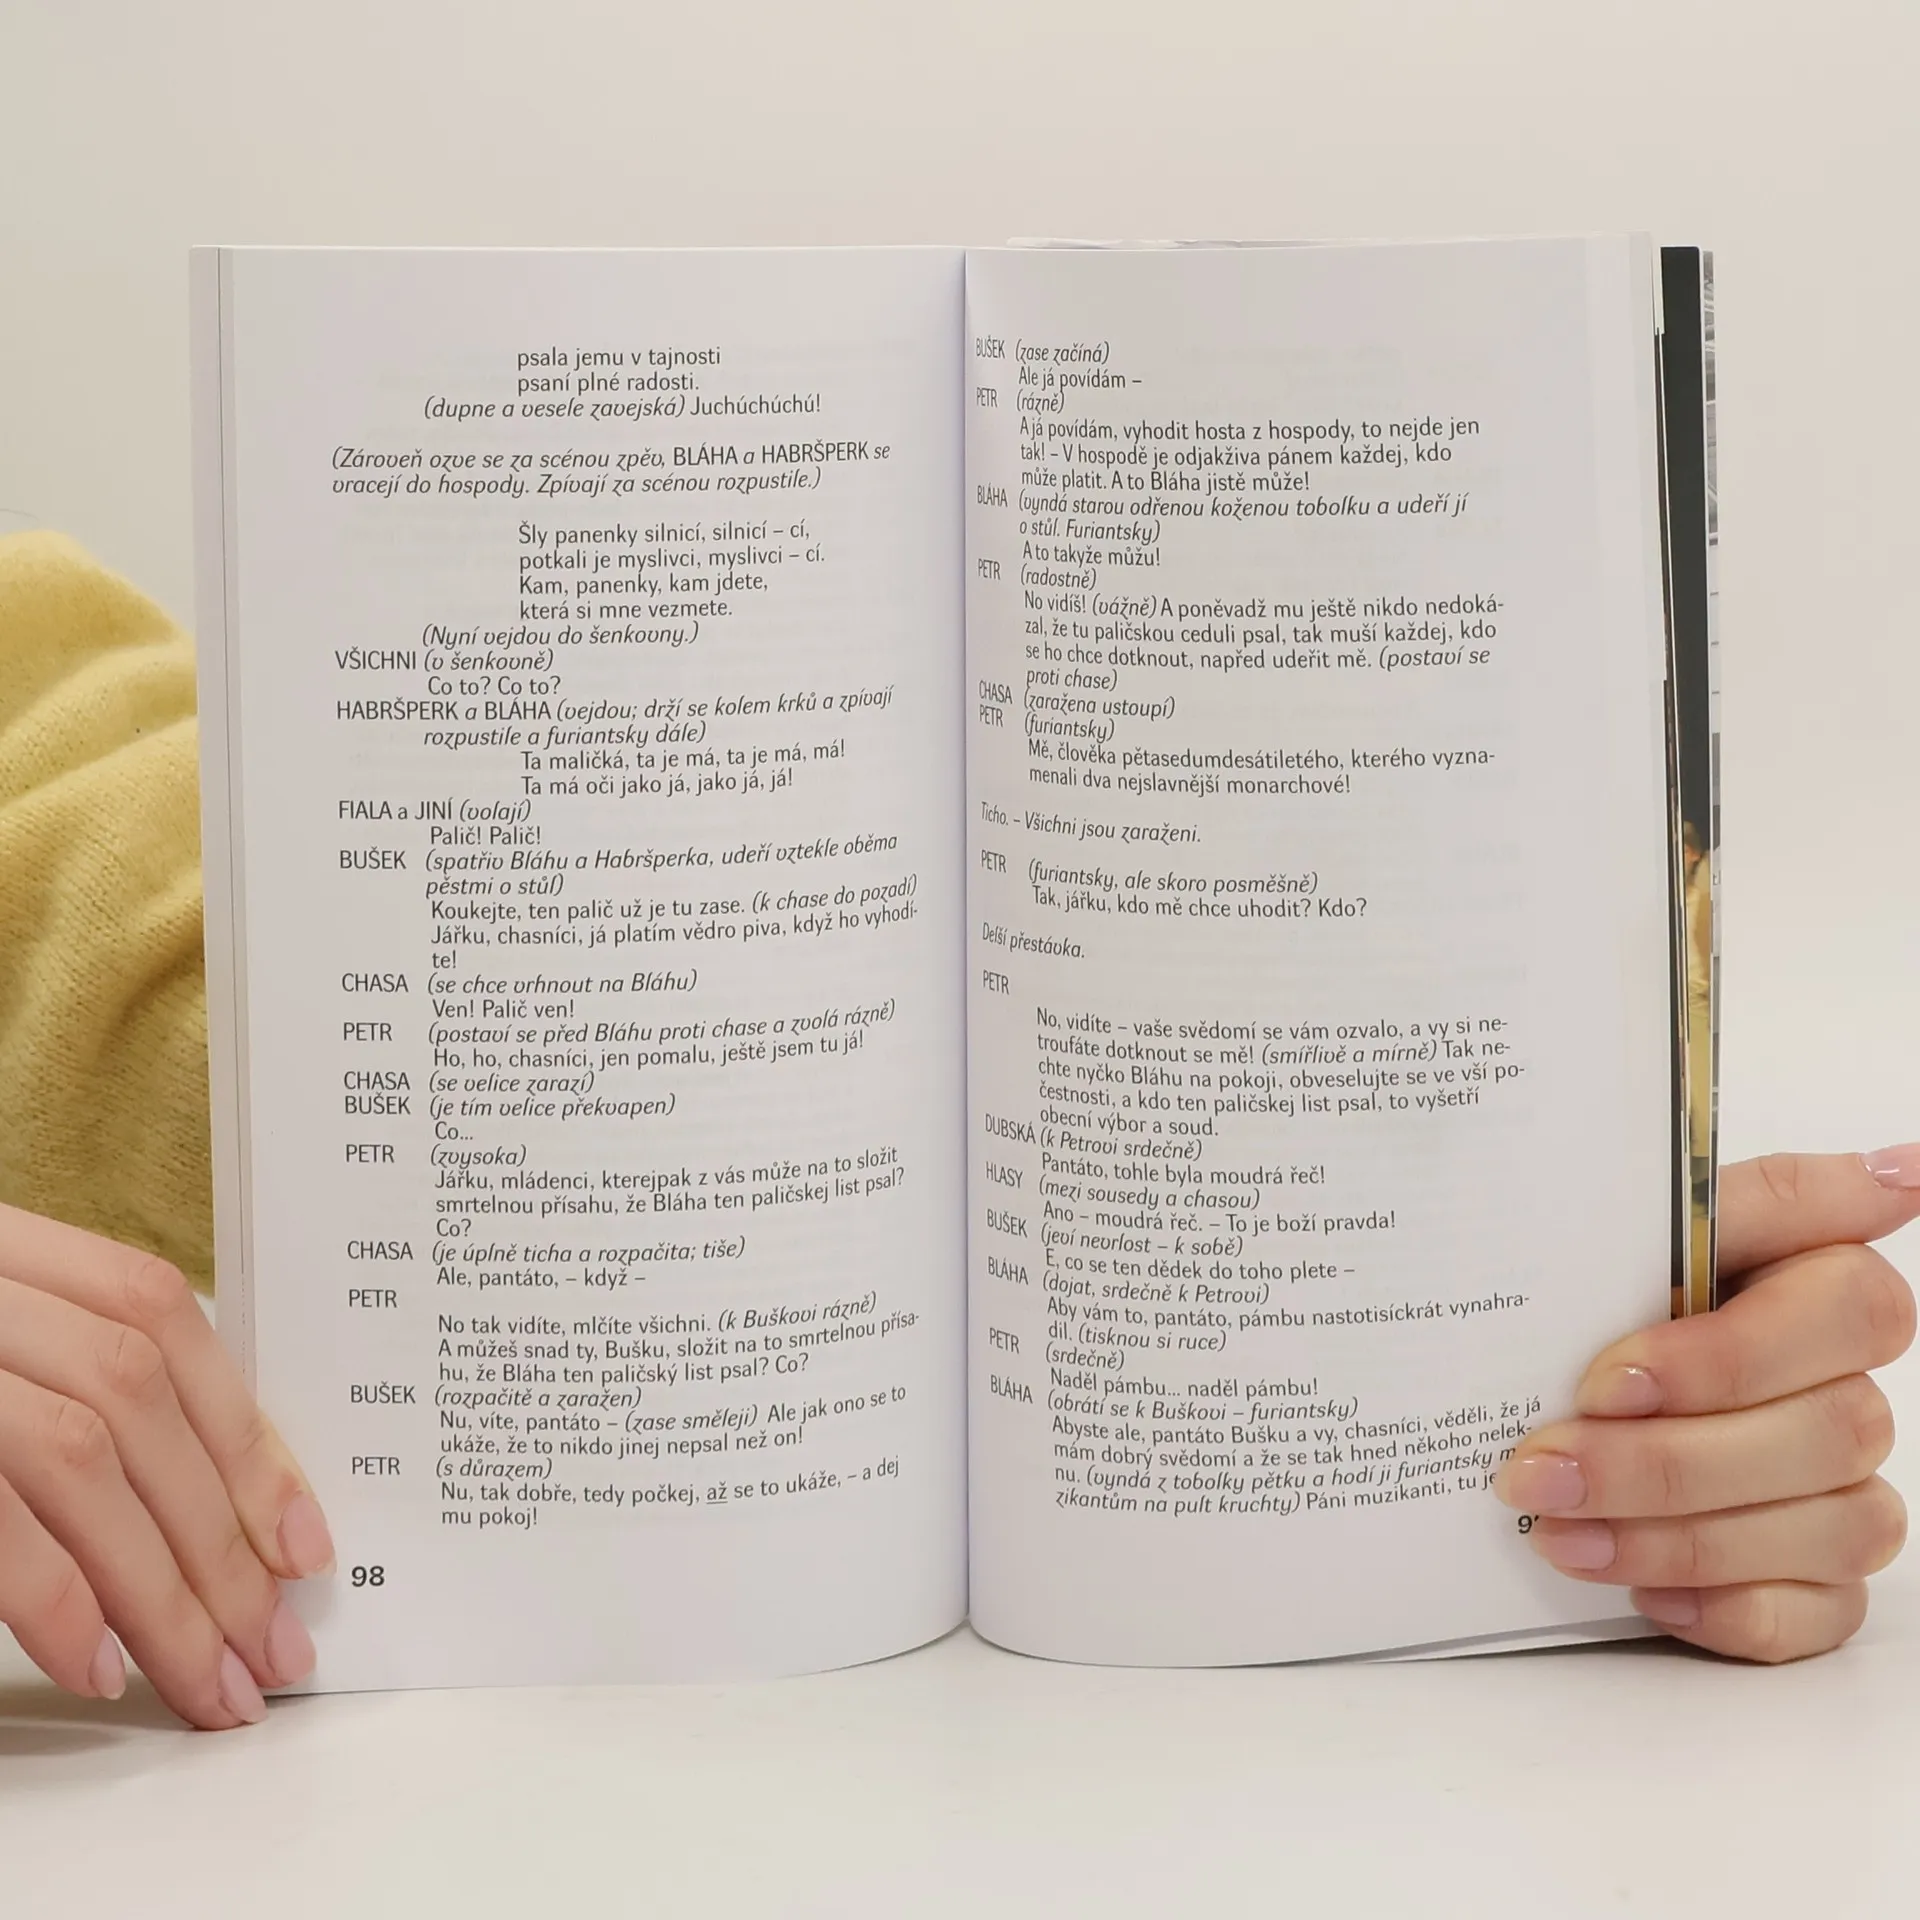 psala jemu v tajnosti
psaní plné radosti.
(dupne a vesele zavejská) Juchúchúchú!
(Zároveň ozve se za scénou zpěv, BLÁHA a HABRŠPERK se
vracejí do hospody. Zpívají za scénou rozpustile.)
Šly panenky silnicí, silnicí – cí,
potkali je myslivci, myslivci – cí.
Kam, panenky, kam jdete,
která si mne vezmete.
(Nyní vejdou do šenkovny.)
VŠICHNI (v šenkovně)
Co to? Co to?
HABRŠPERK a BLÁHA (vejdou; drží se kolem krků a zpívají
rozpustile a furiantsky dále)
Ta maličká, ta je má, ta je má, má!
Ta má oči jako já, jako já, já!
FIALA a JINÍ (volají)
Palič! Palič!
BUŠEK (spatřiv Bláhu a Habršperka, udeří vztekle oběma
pěstmi o stůl)
Koukejte, ten palič už je tu zase. (k chase do pozadí)
Jářku, chasníci, já platím vědro piva, když ho vyhodí-
te!
CHASA (se chce vrhnout na Bláhu)
Ven! Palič ven!
PETR (postaví se před Bláhu proti chase a zvolá rázně)
Ho, ho, chasníci, jen pomalu, ještě jsem tu já!
CHASA (se velice zarazí)
BUŠEK (je tím velice překvapen)
Co...
PETR (zvysoka)
Jářku, mládenci, kterejpak z vás může na to složit
smrtelnou přísahu, že Bláha ten paličskej list psal?
Co?
CHASA (je úplně ticha a rozpačita; tiše)
Ale, pantáto, – když –
PETR
No tak vidíte, mlčíte všichni. (k Buškovi rázně)
A můžeš snad ty, Bušku, složit na to smrtelnou přísa-
hu, že Bláha ten paličský list psal? Co?
BUŠEK (rozpačitě a zaražen)
Nu, víte, pantáto – (zase směleji) Ale jak ono se to
ukáže, že to nikdo jinej nepsal než on!
PETR (s důrazem)
Nu, tak dobře, tedy počkej, až se to ukáže, – a dej
mu pokoj!
98
BUŠEK (zase začíná)
Ale já povídám –
PETR (rázně)
A já povídám, vyhodit hosta z hospody, to nejde jen
tak! – V hospodě je odjakživa pánem každej, kdo
může platit. A to Bláha jistě může!
BLÁHA (vyndá starou odřenou koženou tobolku a udeří jí
o stůl. Furiantsky)
A to takyže můžu!
PETR (radostně)
No vidíš! (vážně) A poněvadž mu ještě nikdo nedoká-
zal, že tu paličskou ceduli psal, tak muší každej, kdo
se ho chce dotknout, napřed udeřit mě. (postaví se
proti chase)
CHASA (zaražena ustoupí)
PETR (furiantsky)
Mě, člověka pětasedumdesátiletého, kterého vyzna-
menali dva nejslavnější monarchové!
Ticho. – Všichni jsou zaraženi.
PETR (furiantsky, ale skoro posměšně)
Tak, jářku, kdo mě chce uhodit? Kdo?
Delší přestávka.
PETR
No, vidíte – vaše svědomí se vám ozvalo, a vy si ne-
troufáte dotknout se mě! (smířlivě a mírně) Tak ne-
chte nyčko Bláhu na pokoji, obveselujte se ve vší po-
čestnosti, a kdo ten paličskej list psal, to vyšetří
obecní výbor a soud.
DUBSKÁ (k Petrovi srdečně)
Pantáto, tohle byla moudrá řeč!
HLASY (mezi sousedy a chasou)
Ano – moudrá řeč. – To je boží pravda!
BUŠEK (jeví nevrlost – k sobě)
E, co se ten dědek do toho plete –
BLÁHA (dojat, srdečně k Petrovi)
Aby vám to, pantáto, pámbu nastotisíckrát vynahra-
dil. (tisknou si ruce)
PETR (srdečně)
Naděl pámbu... naděl pámbu!
BLÁHA (obrátí se k Buškovi – furiantsky)
Abyste ale, pantáto Bušku a vy, chasníci, věděli, že já
mám dobrý svědomí a že se tak hned někoho nelek-
nu. (vyndá z tobolky pětku a hodí ji furiantsky
zikantům na pult kruchty) Páni muzikanti, tu